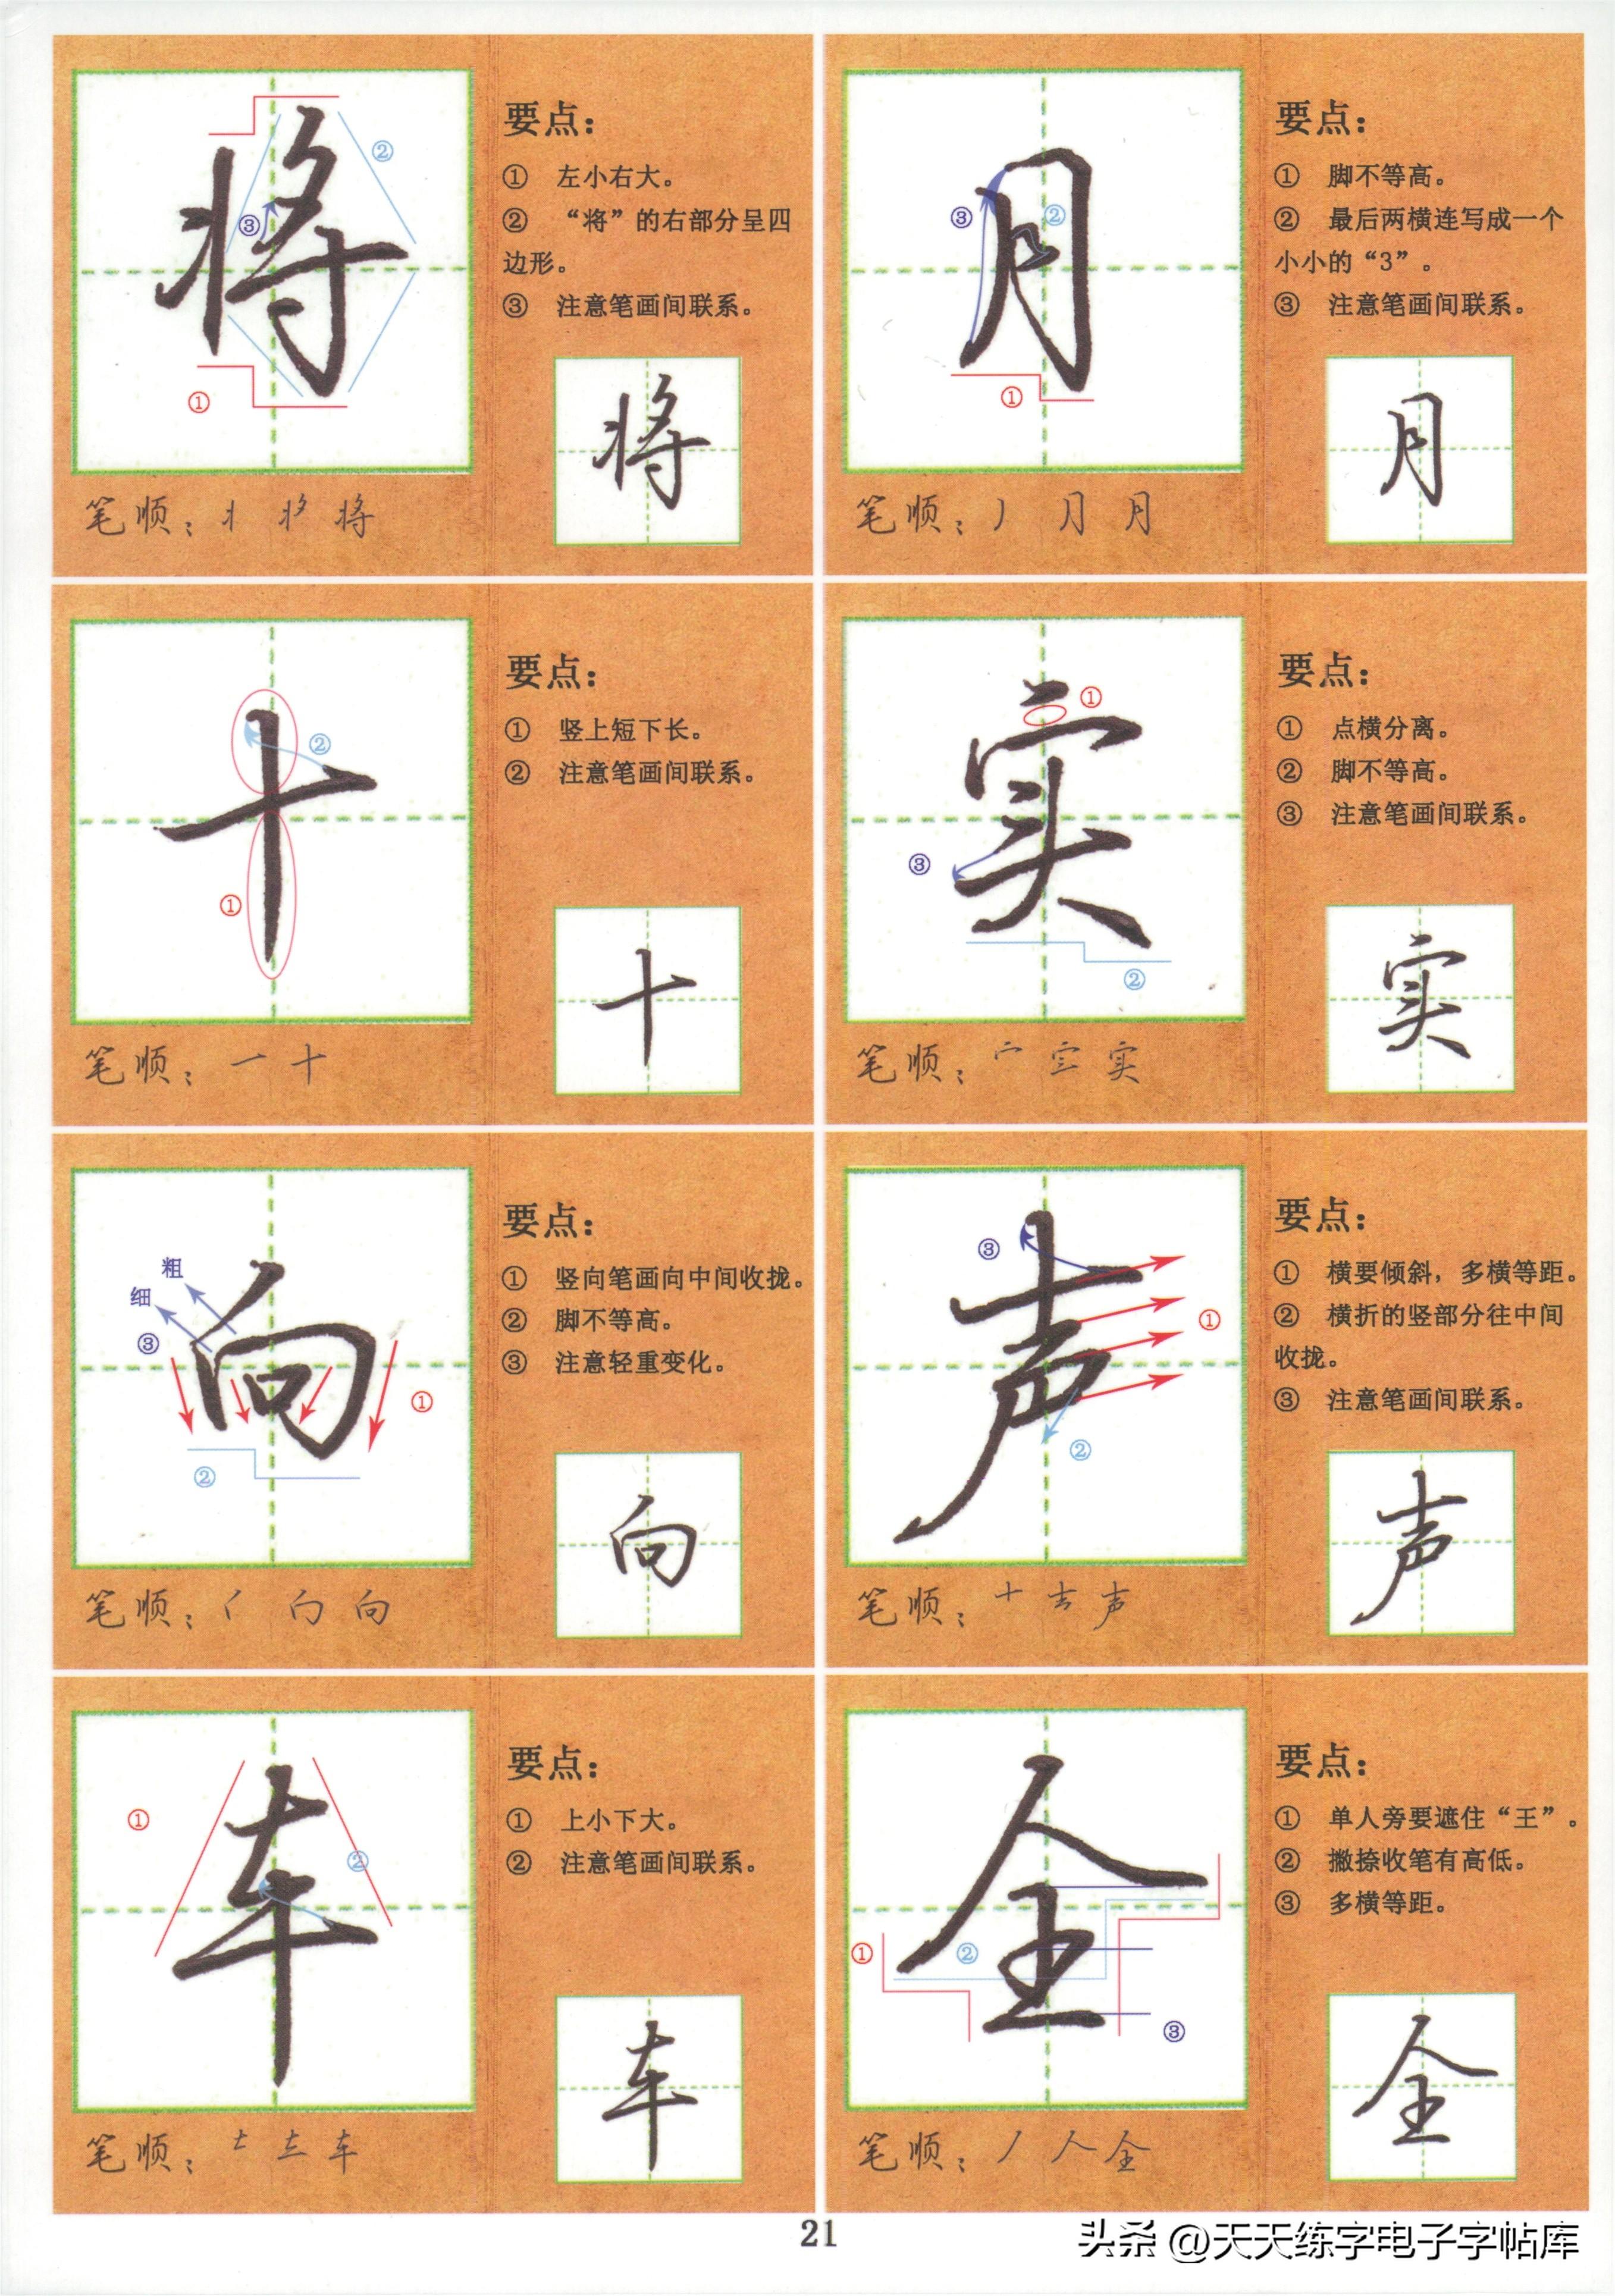 将
②
③
①
要点：
① 左小右大。
② “将”的右部分呈四
边形。
③ 注意笔画间联系。
将
笔顺：丬 将
月
③
②
①
要点：
① 脚不等高。
② 最后两横连写成一个
小小的“3”。
③ 注意笔画间联系。
月
笔顺：丿 ⺆ 月
十
②
①
要点：
① 竖上短下长。
② 注意笔画间联系。
十
笔顺：一 十
实
①
③
②
要点：
① 点横分离。
② 脚不等高。
③ 注意笔画间联系。
实
笔顺：宀 实
向
粗
细
③
①
②
要点：
① 竖向笔画向中间收拢。
② 脚不等高。
③ 注意轻重变化。
向
笔顺：向
声
③
①
②
要点：
① 横要倾斜，多横等距。
② 横折的竖部分往中间
收拢。
③ 注意笔画间联系。
声
笔顺：十 声
车
①
②
要点：
① 上小下大。
② 注意笔画间联系。
车
笔顺：车
全
①
②
③
要点：
① 单人旁要遮住“王”。
② 撇捺收笔有高低。
③ 多横等距。
全
笔顺：丿 人 全
21
头条 @天天练字电子字帖库